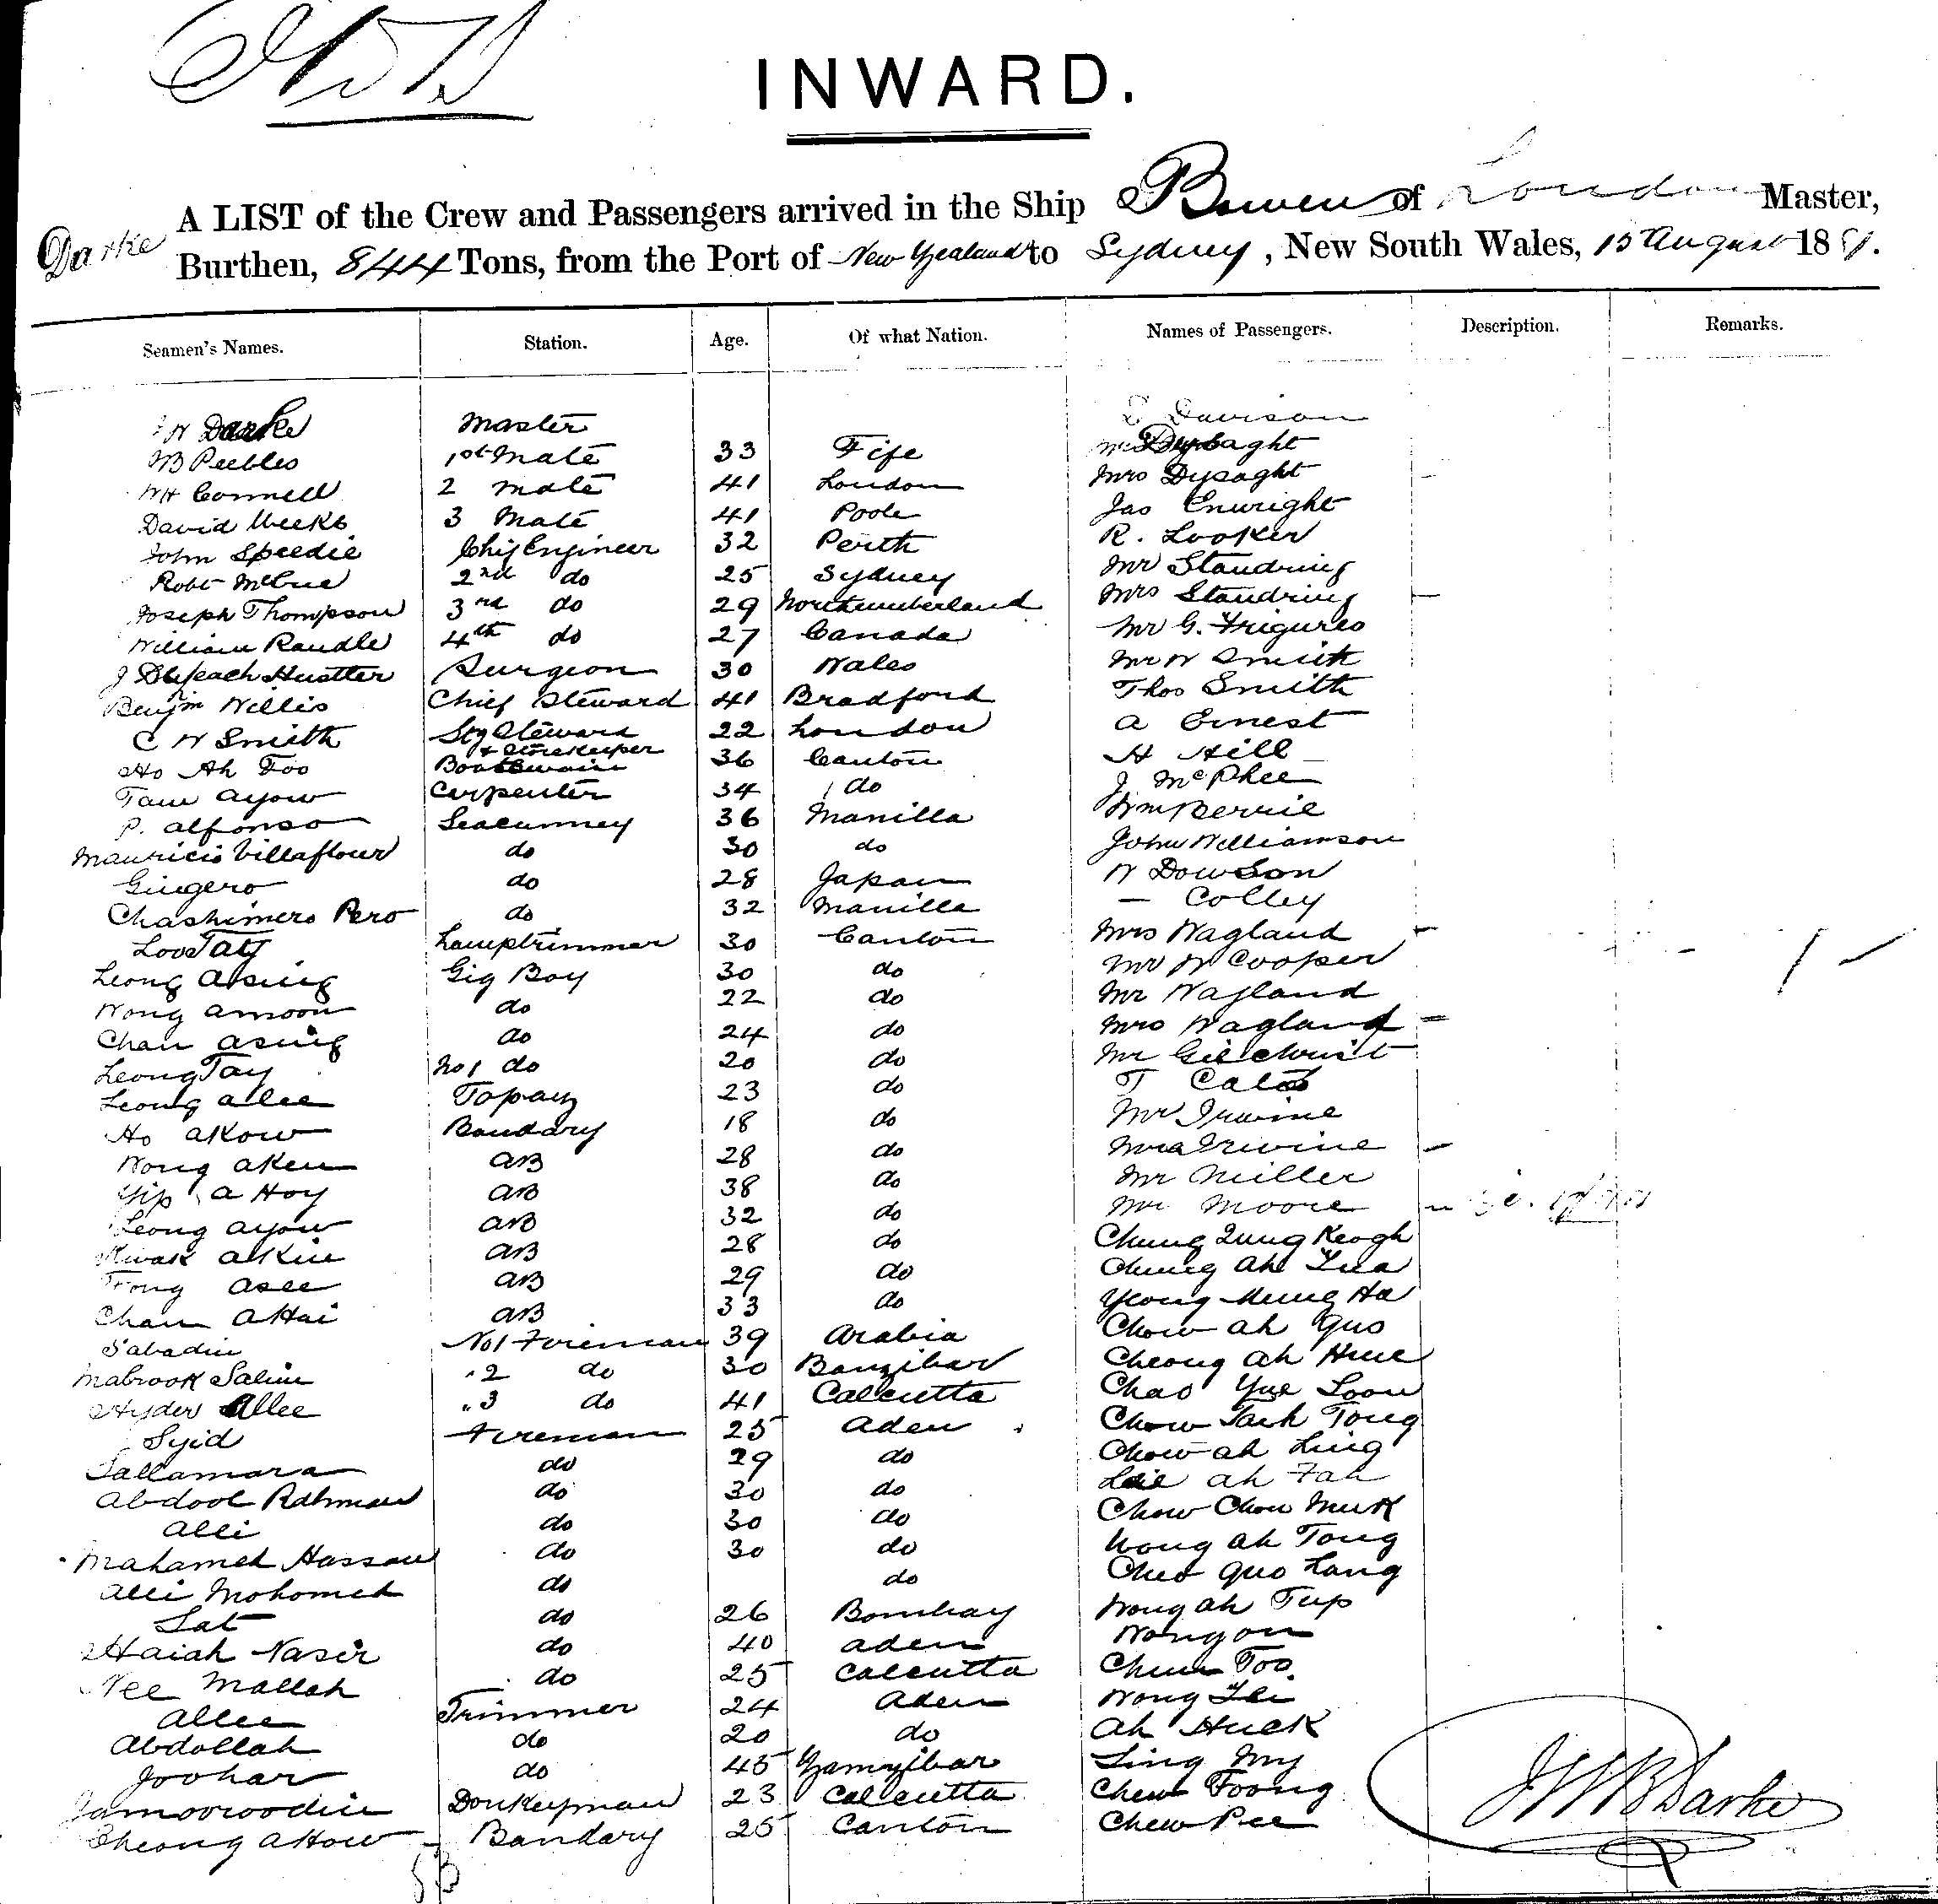 INWARD.
A LIST of the Crew and Passengers arrived in the Ship Bowen of London Master,
Darke
Burthen, 844 Tons, from the Port of New Zealand to Sydney, New South Wales, 15 August 1881.
Seamen's Names. Station. Age. Of what Nation. Names of Passengers. Description. Remarks.
W Darke Master Davison
Peebles 1st Mate 33 Fife Dysaght
WH Connell 2 Mate 41 London Mrs Dysaght
David Meeks 3 Mate 41 Poole Jas Enwright
John Speedie Chif Engineer 32 Perth R. Looker
Robt McCue 2nd do 25 Sydney Mr Standring
Joseph Thompson 3rd do 29 Northumberland Mrs Standring
William Randle 4th do 27 Canada Mr G. Frigures
J Hustler Surgeon 30 Wales Mr W Smith
Benjm Willis Chief Steward 41 Bradford Thos Smith
C W Smith Steward & Storekeeper 22 London A Ernest
Ho Ah Foo Boatswain 36 Canton H Hill
Tam Ayow Carpenter 34 do J McPhee
P. Alfonso Seacunney 36 Manilla Wm Berrie
Mauricio Villaflour do 30 do John Williamson
Gingero do 28 Japan W Dowson
Chashimero Pero do 32 Manilla — Colley
Loo Taty Lamptrimmer 30 Canton Mrs Wagland
Leong Asing Gig Boy 30 do Mr W Cooper
Wong Amoon do 22 do Mr Wagland
Chan Asing do 24 do Mrs Wagland
Leong Tay No 1 do 20 do Mr Gilchrist
Leong Alee Topaz 23 do T
Ho Akow Bandary 18 do Mr Irwine
Wong Aken AB 28 do Mrs Irwine
Yip A Hoy AB 38 do Mr Miller
Leong Ayow AB 32 do Mr Moore
Kwak Akin AB 28 do Chung Lung Keogh
Fong Asee AB 29 do Chung Ah
Chan Akai AB 33 do Yeong Mung Ha
Sabadin No1 Fireman 39 Arabia Chow Ah Guo
Mabrook Salim " 2 do 30 Banzibar Cheong Ah Hue
Hyder Allee " 3 do 41 Calcutta Chao Yue Loon
Syid Fireman 25 Aden Chow Tack Tong
Sallamara do 29 do Chow Ah Ling
Abdool Rahman do 30 do Ah Fah
Alli do 30 do Chow Chow Muk
Mahamed Hassan do 30 do Wong Ah Tong
Alli Mohomed do do Cheo Guo Lang
Sat do 26 Bombay Wong Ah Tup
Haiah Nasir do 40 Aden Wong On
Nee Mallah do 25 Calcutta Chun Too
Allee Trimmer 24 Aden Wong Lei
Abdollah do 20 do Ah Huck
Joohar do 45 Zamzibar Sing My
Jamooroodin Donkeyman 23 Calcutta Chew Foong
Cheong Ahow Bandary 25 Canton Chew Pee
JWB Darke